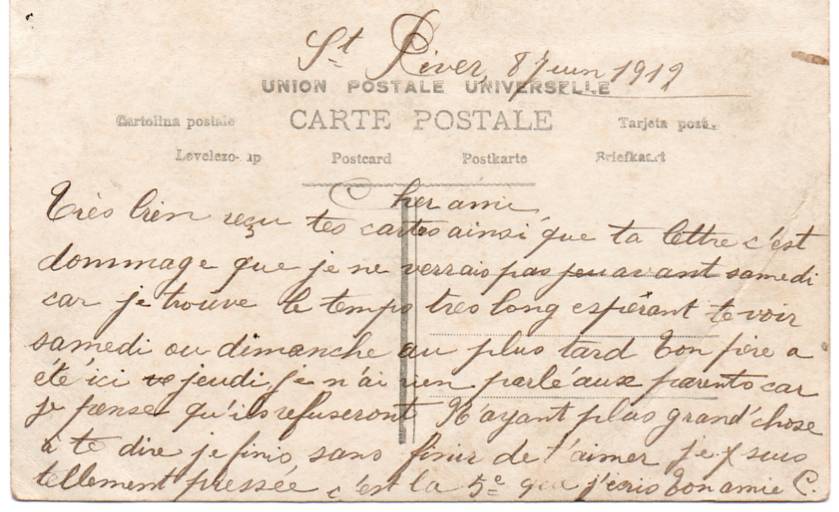 St River, 8 juin 1912
UNION POSTALE UNIVERSELLE
Cartolina postale CARTE POSTALE Tarjeta
Postcard Postkarte
Cher ami,
Très bien reçu tes cartes ainsi que ta lettre c'est
dommage que je ne verrais pas avant samedi
car je trouve le temps très long espérant te voir
samedi ou dimanche au plus tard ton père a
été ici jeudi, je n'ai rien parlé aux parents car
je pense qu'ils refuseront N'ayant plus grand'chose
à te dire je finis sans finir de t'aimer je suis
tellement pressée c'est la 5e que j'écris ton amie C.